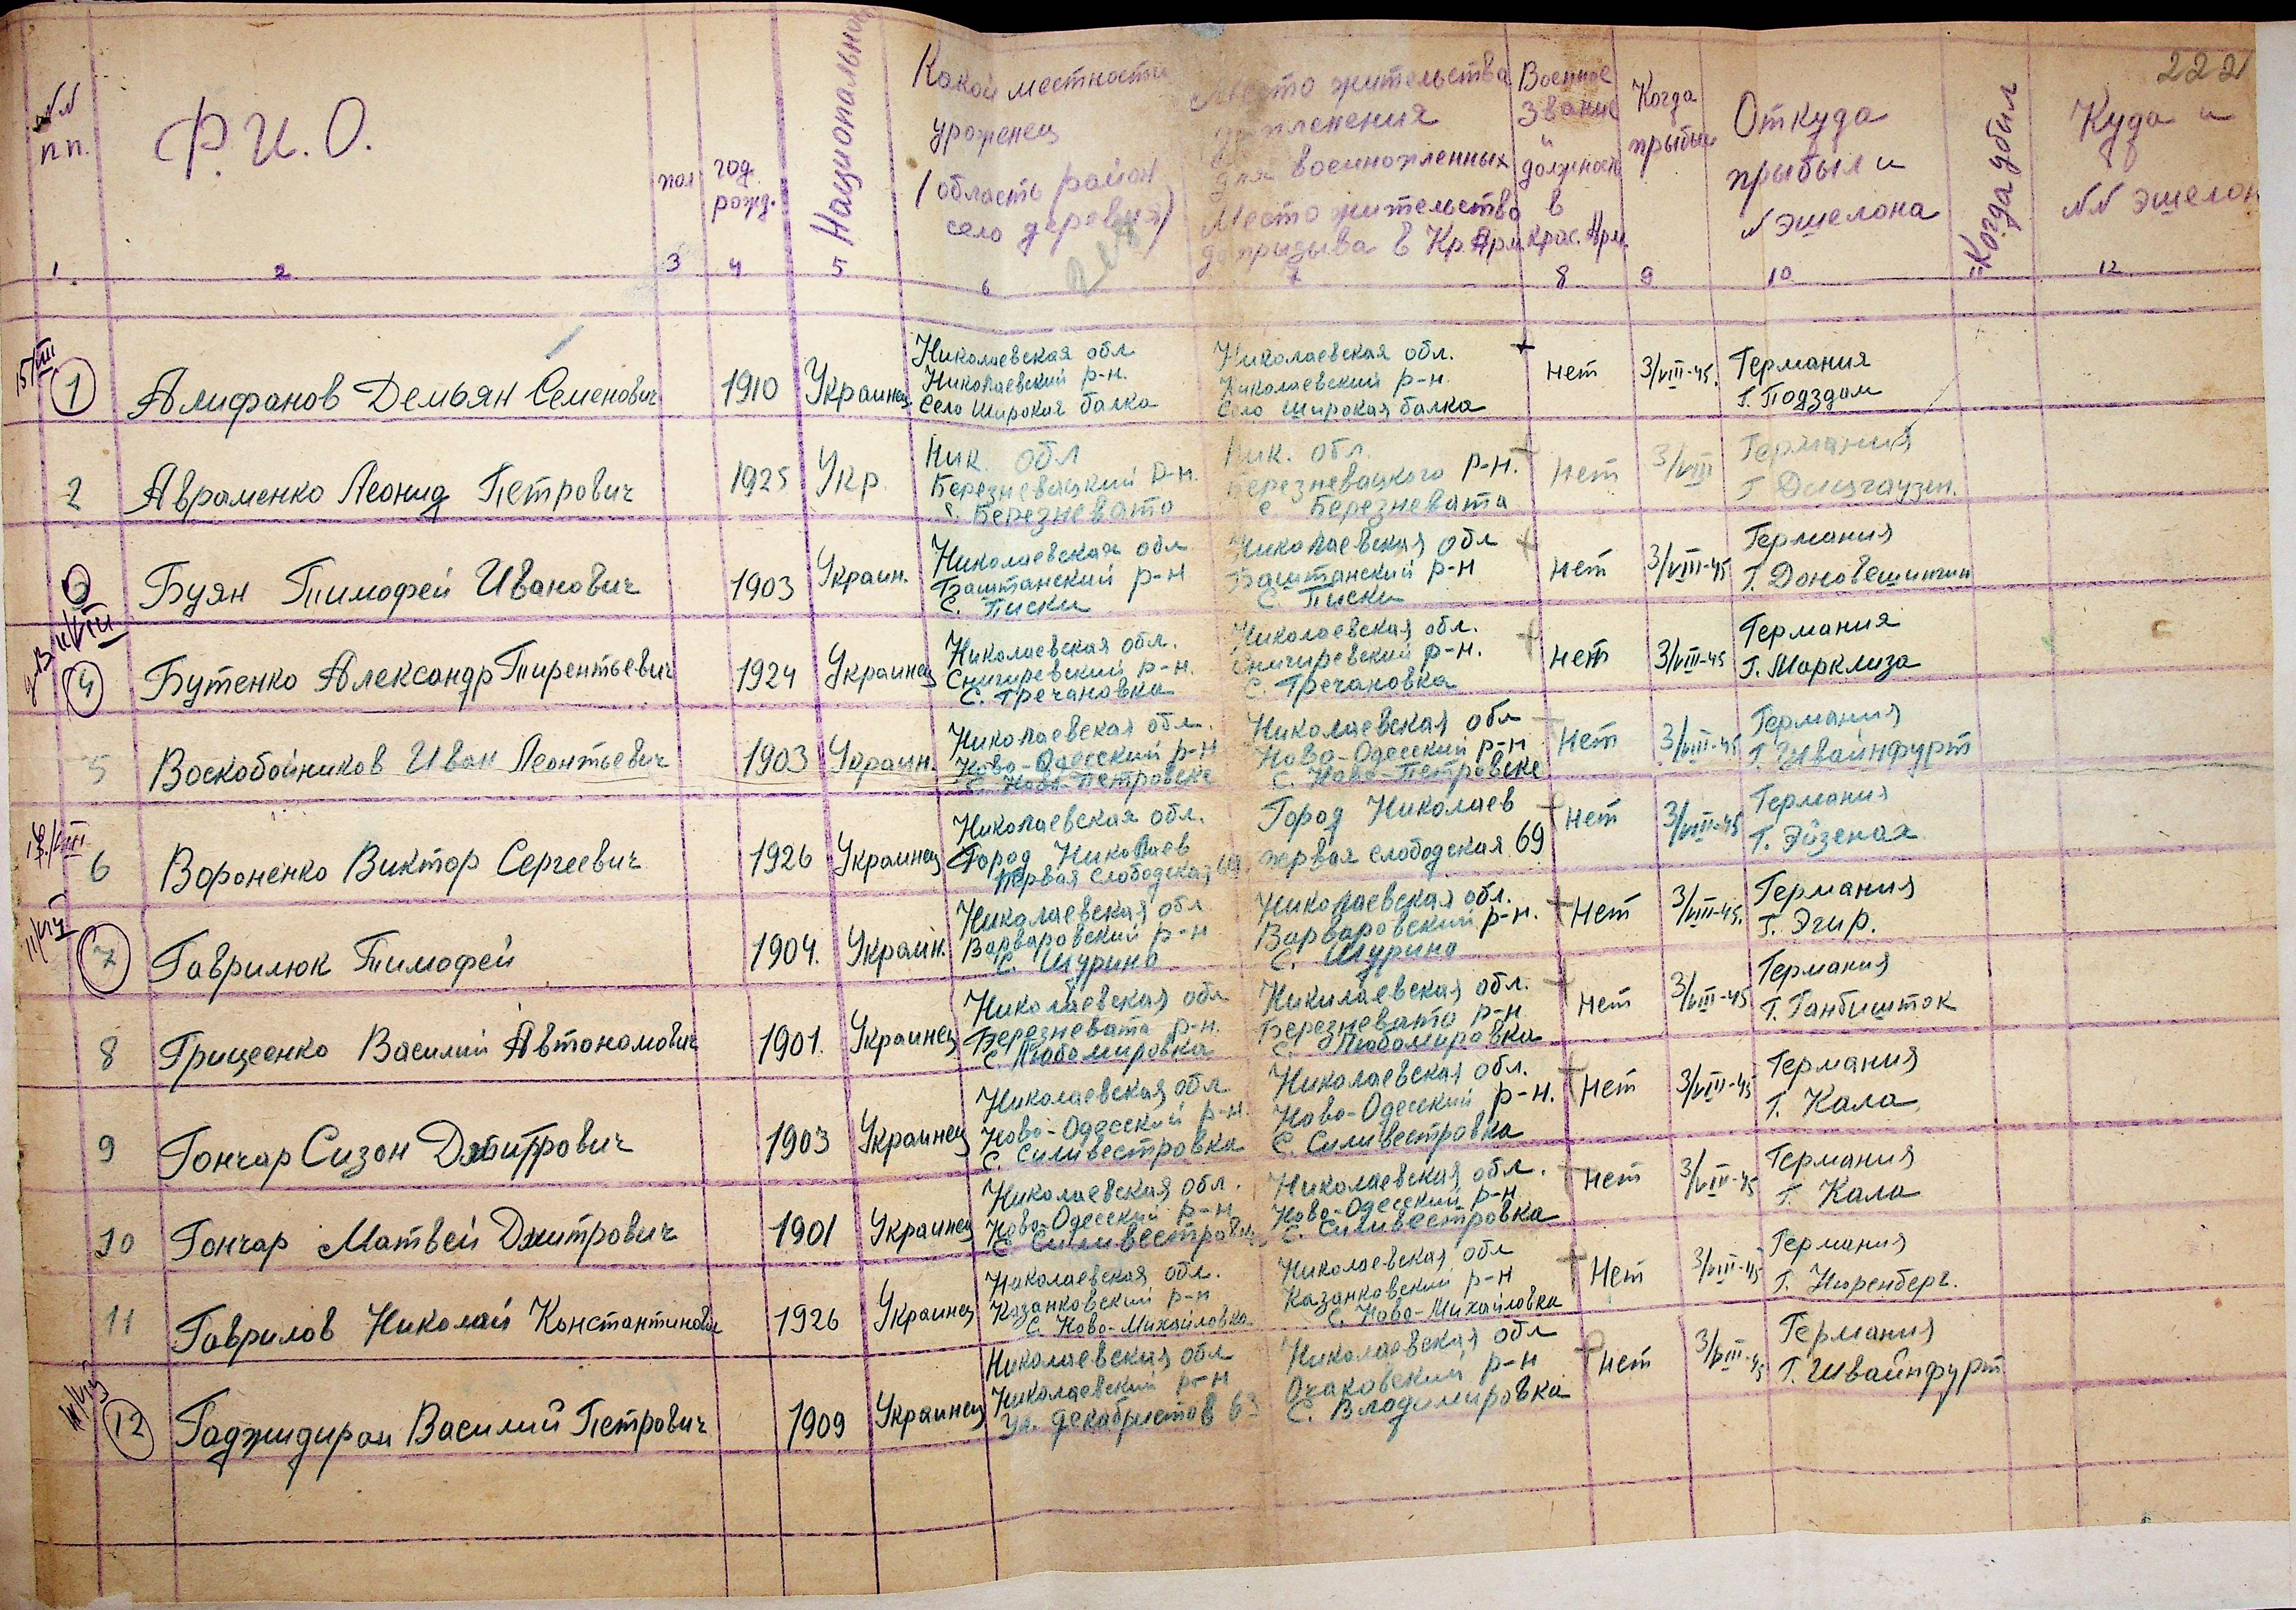 222
№№ п.п.
Ф.И.О.
пол
год рожд.
Национальность
Какой местности уроженец (область район село деревня)
Место жительства до пленения для военнопленных Место жительства до призыва в Кр. Арм.
Военное звание и должность в Крас. Арм.
Когда прибыл
Откуда прибыл и № эшелона
Когда убыл
Куда и №№ эшелон
1 2 3 4 5 6 7 8 9 10 11 12
15/VIII
1 Алифанов Демьян Семенович 1910 Украинец
Николаевская обл
Николаевский р-н.
Село Широкая балка
Николаевская обл.
Николаевский р-н.
Село Широкая балка
нет 3/VIII-45. Германия
Г. Подздам
2 Авраменко Леонид Петрович 1925 Укр.
Ник. обл
Березневацкий р-н.
с. Березневато
Ник. обл.
Березневацкого р-н.
с. Березневата
нет 3/VIII Германия
Г.
Буян Тимофей Иванович 1903 Украин.
Николаевская обл
Баштанский р-н
С. Писки
Николаевская обл
Баштанский р-н
С. Писки
нет 3/VIII-45 Германия
Г. Доновешингин
4 Бутенко Александр Тирентьевич 1924 Украинец
Николаевская обл.
Снигиревский р-н.
С. Гречановка
Николаевская обл.
Снигиревский р-н.
С. Гречановка
нет 3/VIII-45 Германия
Г. Марклиза
5 Воскобойников Иван Леонтьевич 1903 Украин.
Николаевская обл.
Ново-Одесский р-н
С. Ново-Петровске
Николаевская обл
Ново-Одесский р-н
С. Ново-Петровске
Нет 3/VIII-45 Германия
Г. Швайнфурт
6 Вороненко Виктор Сергеевич 1926 Украинец
Николаевская обл.
Город Николаев
Первая слободская 69
Город Николаев
первая слободская 69
Нет 3/VIII-45 Германия
Г. Эйзенах
11/VIII
7 Гаврилюк Тимофей 1904. Украин.
Николаевская обл
Варваровский р-н
С. Шурино
Николаевская обл.
Варваровский р-н.
С. Шурино
Нет 3/VIII-45. Германия
Г. Эгир.
8 Грищеенко Василий Автономович 1901. Украинец
Николаевская обл
Березневата р-н.
С. Любомировка
Николаевская обл.
Березневато р-н
С. Любомировка
нет 3/VIII-45 Германия
Г. Ганбишток
9 Гончар Сизон Дмитрович 1903 Украинец
Николаевская обл
Ново-Одесский р-н.
С. Силивестровка
Николаевская обл.
Ново-Одесский р-н.
С. Силивестровка
Нет 3/VIII-45 Германия
Г. Кала
10 Гончар Матвей Дмитрович 1901 Украинец
Николаевская обл.
Ново-Одесский р-н
С Силивестровка
Николаевская обл.
Ново-Одесский р-н
С. Силивестровка
Нет 3/VIII-45 Германия
Г. Кала
11 Гаврилов Николай Константинович 1926 Украинец
Николаевская обл.
Казанковский р-н
С. Ново-Михайловка
Николаевская обл
Казанковский р-н
С. Ново-Михайловка
Нет 3/VIII-45 Германия
Г. Нюренберг.
12 Гаджидиран Василий Петрович 1909 Украинец
Николаевская обл
Николаевский р-н
Ул. Декабристов 63
Николаевская обл
Очаковский р-н
С. Владимировка
нет 3/VIII-45 Германия
Г. Швайнфурт